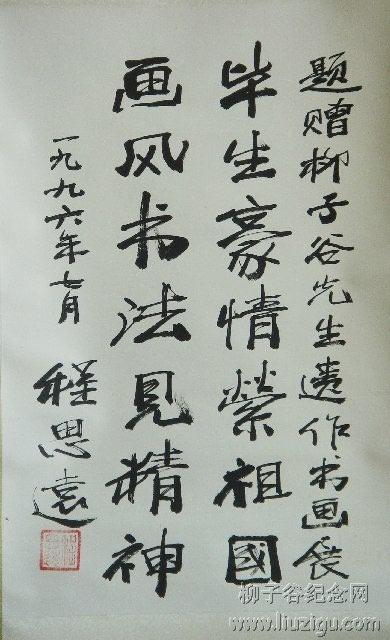 题赠柳子谷先生遗作书画展
毕生豪情萦祖国
画风书法见精神
一九九六年七月
程思远
柳子谷纪念网
www.liuzigu.com